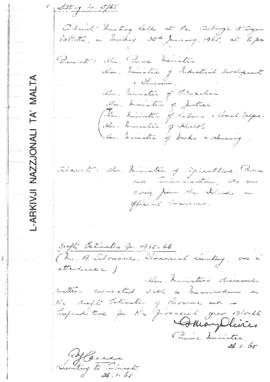 Sitting No. 5/65
Cabinet Meeting held at the Auberge d'Aragon
Valletta, on Tuesday 26th January, 1965, at 6 pm
Present: Hon. Prime Minister
Hon. Minister of Industrial Development
& Tourism
Hon. Minister of Education
Hon. Minister of Justice
Hon. Minister of Labour
Hon. Minister of Health
Hon. Minister of Works & Housing
Absent: Hon. Minister of Agriculture
away from the Island on
official business.
Draft Estimates for 1965-66
Financial Secretary, was in
attendance)
Hon. Ministers discussed
matters connected with a Memorandum on
the draft Estimates of Revenue and
Expenditure for the financial year 1965-66
Prime Minister
26.1.65
Secretary to Cabinet
26.1.65
L-ARKIVJI NAZZJONALI TA' MALTA